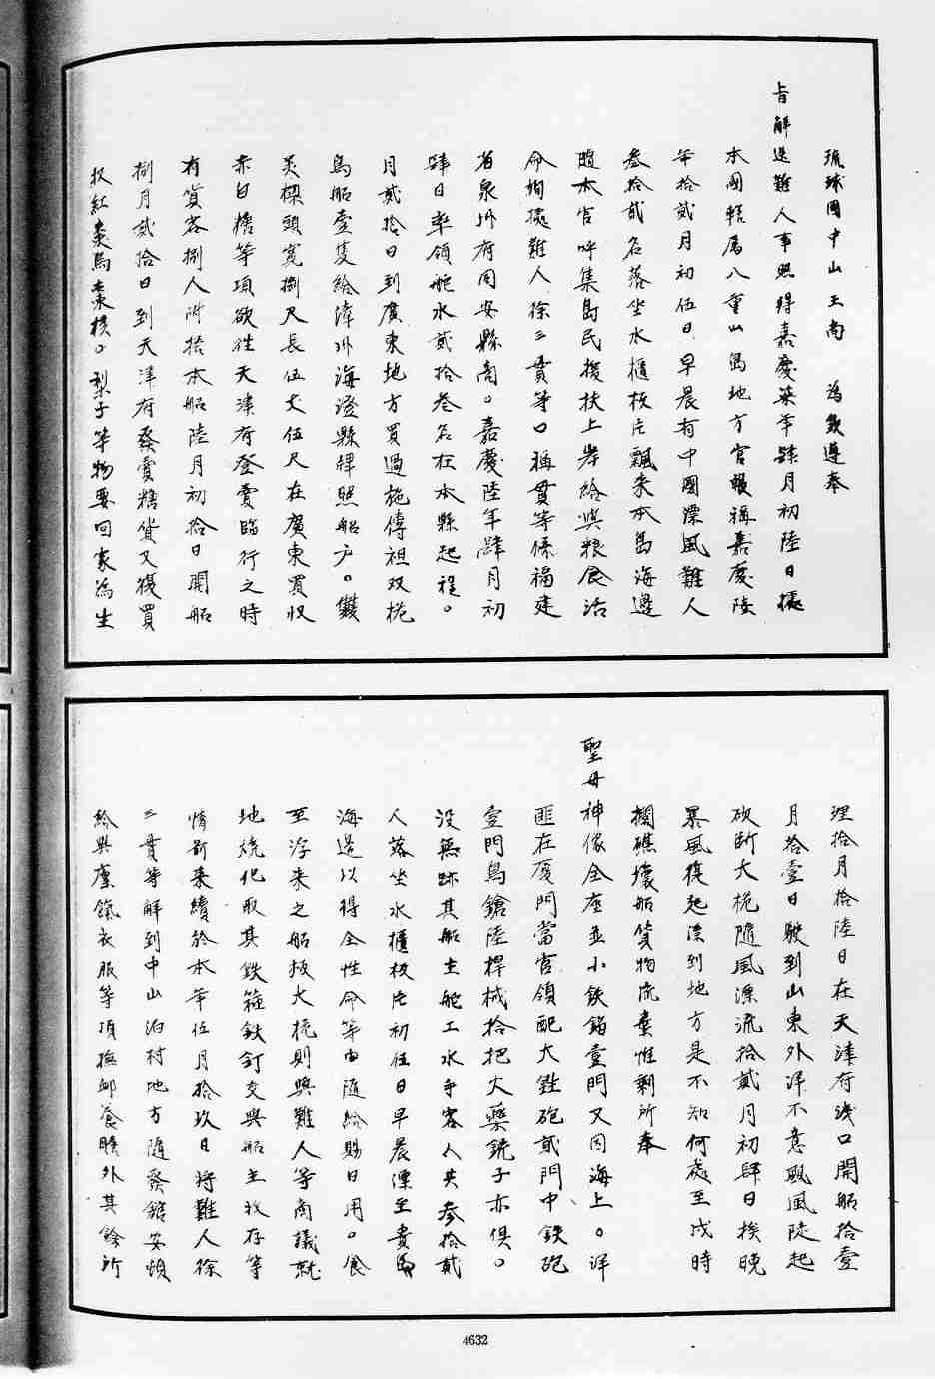 琉球國中山王尚　為欽遵奉
旨解送難人事照得嘉慶柒年肆月初陸日據
本國轄屬八重山島地方官報稱嘉慶陸
年拾貳月初伍日早晨有中國漂風難人
叁拾貳名落坐水櫃板片飄來本島海邊
隨本官呼集島民援扶上岸給與粮食活
命詢據難人徐三貫等口稱貫等係福建
省泉州府同安縣商。嘉慶陸年肆月初
肆日率領舵水貳拾叁名在本縣起程。
月貳拾日到廣東地方買過施傳祖双桅
鳥船壹隻給漳州海澄縣牌照船户。
梁頭寬捌尺長伍丈伍尺在廣東買收
赤白糖等項欲往天津府發賣臨行之時
有貨客捌人附搭本船陸月初拾日開船
捌月貳拾日到天津府發賣糖貨又復買
收紅棗烏棗核。梨子等物要回家為生
理拾月拾陸日在天津府淺口開船拾壹
月拾壹日駛到山東外洋不意颶風陡起
砍斷大桅隨風漂流拾貳月初肆日挨晚
暴風復起漂到地方是不知何處至戌時
擱礁壞船貨物流棄惟剩所奉
聖母神像全座並小鉄錨壹門又因海上。洋
匪在厦門當官領配大銼砲貳門中鉄砲
壹門鳥鎗陸桿械拾把火藥銃子亦俱。
沒無跡其船主舵工水手客人共參拾貳
人落坐水櫃板片初伍日早晨漂至貴島
海邊以得全性命等由隨給賜日用。食
至浮来之船板大桅則與難人等商議就
地燒化取其鉄箍鉄釘交與船主收存等
情前来續於本年伍月拾玖日将難人徐
三貫等解到中山泊村地方隨發舘安頓
給與廩餼衣服等項撫卹養贍外其餘所
4632